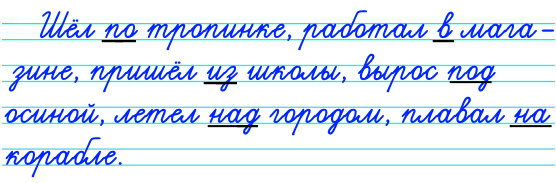 Шёл по тропинке, работал в мага-
зине, пришёл из школы, вырос под
осиной, летел над городом, плавал на
корабле.